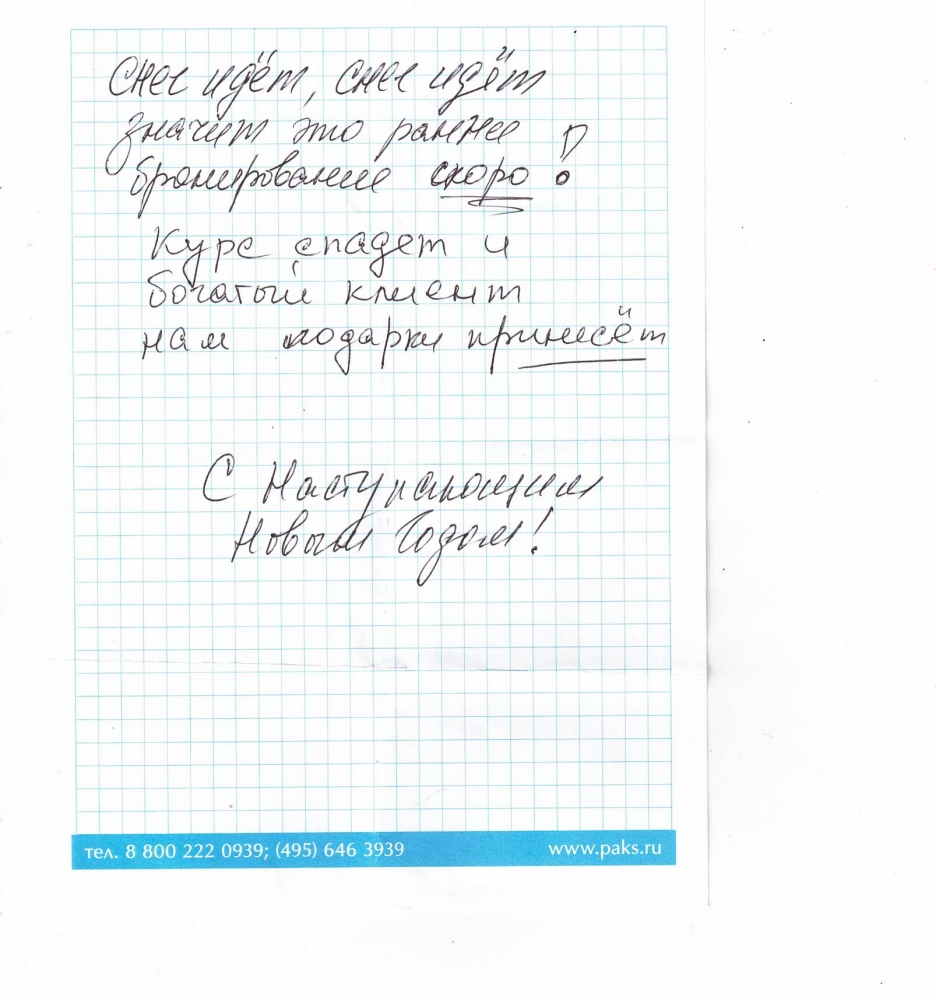 Снег идёт, снег идёт
значит это раннее
бронирование скоро!
Курс спадет и
богатый клиент
нам подарки принесёт
С Наступающим
Новым Годом!
тел. 8 800 222 0939; (495) 646 3939
www.paks.ru